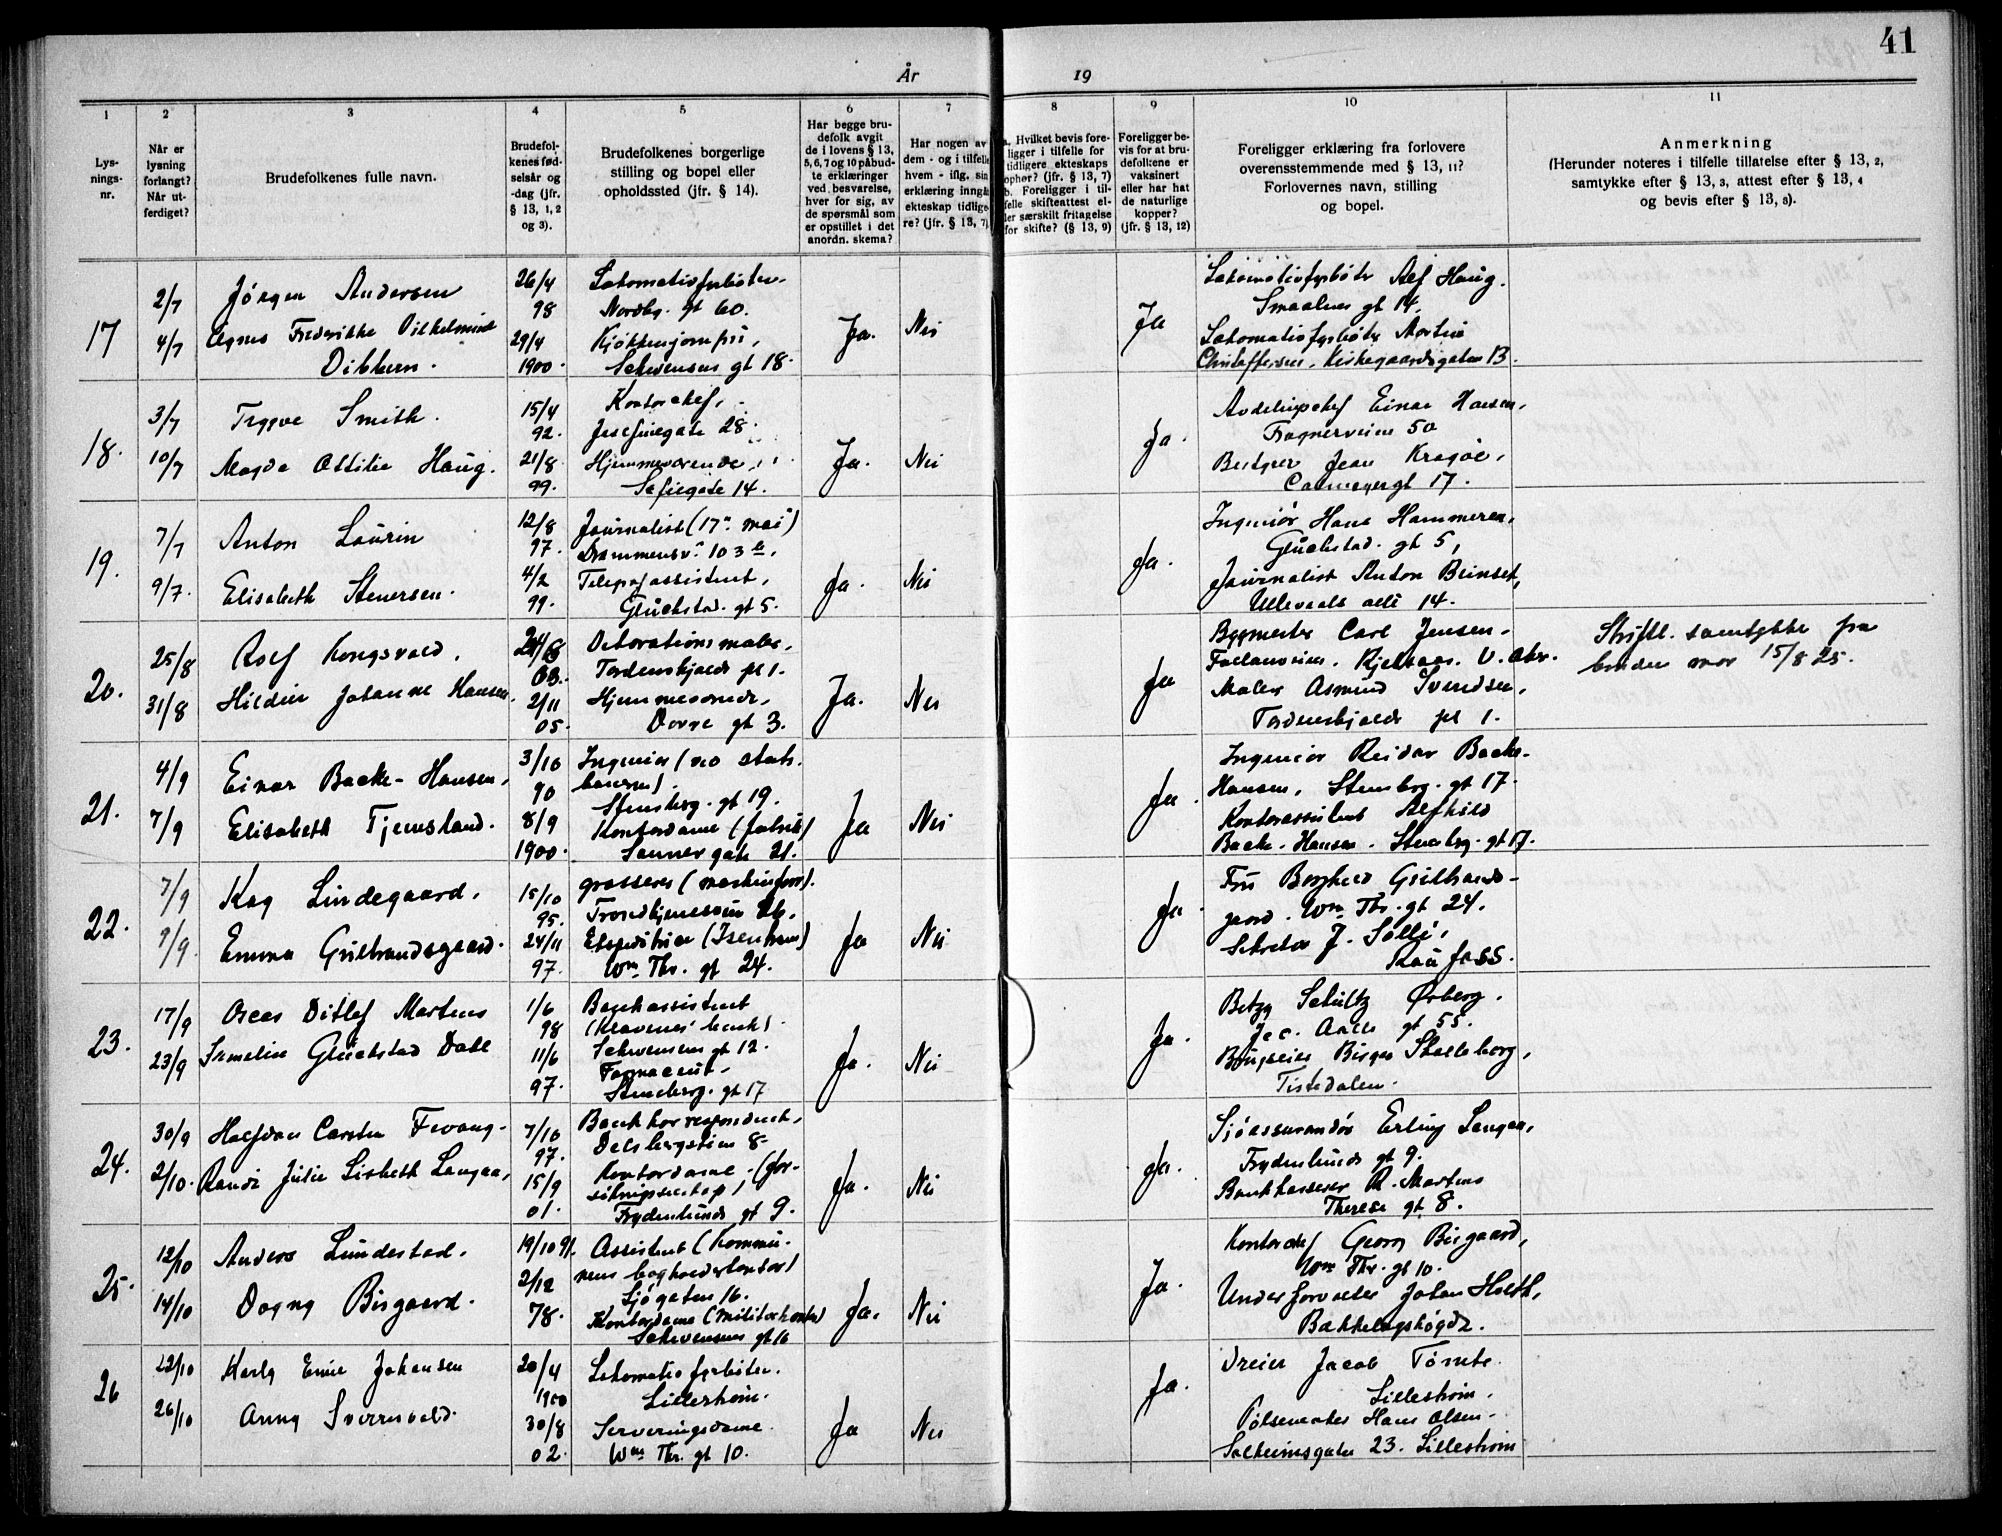 41
År
19
1
2
3
4
5
6
7
8
9
10
11
Lys-
nings-
nr.
Når er
lysning
forlangt?
Når ut-
ferdiget?
Brudefolkenes fulle navn.
Brudefol-
kenes fød-
selsår og
-dag (jfr.
§ 13, 1, 2
og 3).
Brudefolkenes borgerlige
stilling og bopel eller
opholdssted (jfr. § 14).
Har begge bru-
defolk avgit
de i lovens § 13,
5, 6, 7 og 10 påbud-
te erklæringer
ved besvarelse,
hver for sig, av
de spørsmål som
er opstillet i det
anordn. skema?
Har nogen av
dem - og i tilfelle
hvem - iflg. sin
erklæring inngå
ekteskap tidlige-
re? (jfr. § 13, 7)
a. Hvilket bevis fore-
ligger i tilfelle for
tidligere ekteskaps
ophør? (jfr. § 13, 7)
b. Foreligger i til-
felle skifteattest el-
ler særskilt fritagelse
for skifte? (§ 13, 9)
Foreligger be-
vis for at bru-
defolkene er
vaksinert
eller har hat
de naturlige
kopper?
(jfr. § 13, 12)
Foreligger erklæring fra forlovere
overensstemmende med § 13, 11?
Forlovernes navn, stilling
og bopel.
Anmerkning
(Herunder noteres i tilfelle tillatelse efter § 13, 2,
samtykke efter § 13, 3, attest efter § 13, 4
og bevis efter § 13, 8).
17
2/7
4/7
Jörgen Andersen
Agnes Fredrikke Vilhelmine
Dibbern.
26/4
98
29/4
1900.
Lokomotivfyrböter
Nordbg. gt 60.
Kjökkenjomfru,
Schwensens gt 18.
Ja.
Nei
Ja
Lokomotivfyrböter Alf Haug.
Smaalens gt 14.
Lokomotivfyrböter Martin
Christoffersen. Kirkegaardsgaten 13.
18.
3/7
10/7
Trygve Smith.
Magda Ottilie Haug.
15/4
92.
21/8
99.
Kontorchef,
Josefinegate 28.
Hjemmeværende,
Sofiegate 14.
Ja.
Nei
Ja.
Avdelingschef Einar Hansen,
Frognerveien 50
Bestyrer Jean Kragöe,
Carmeyergt 17.
19.
7/7
9/7.
Anton Laurin
Elisabeth Stenersen.
12/8
97.
4/2
99.
Journalist (17de mai)
Drammensv. 103 b,
Telegrafassistent,
Glückstad. gt 5.
Ja.
Nei
Ja.
Ingeniör Hans Hammeren,
Glückstad. gt 5,
Journalist Anton Beinset,
Ullevaals alle 14.
20.
25/8
31/8
Rolf Kongsvold.
Hildur Johanne Hansen.
24/8
03.
2/11
05.
Dekorationsmaler,
Tordenskjolds pl 1.
Hjemmeværende,
Dovre gt 3.
Ja.
Nei
Ja
Byggmester Carl Jensen.
Maler Asmund Svendsen,
Tordenskjolds pl 1.
Skriftl. samtykke fra
brudens mor 15/8 25.
21.
4/9
7/9
Einar Backe-Hansen,
Elisabeth Tjemsland.
3/10
90
8/9
1900.
Ingeniör (ved stats-
banerne).
Stensberg. gt 19.
Kontordame (fabrik)
Sannergate 21.
Ja
Nei
Ja.
Ingeniör Reidar Backe-
Hansen, Stensberg. gt 17.
Kontorassistent Alfhild
Backe-Hansen. Stensberg. gt 17.
22.
7/9
9/9.
Kay Lindegaard,
Emma Gulbrandsgaard.
15/10
95.
24/11
97.
grosserer (maskinforr).
Ekspeditrice (Isenkram)
Wm. Thr. gt 24.
Ja
Nei
Ja.
Fru Borghild Gulbrands-
gaard. Wm. Thr. gt 24.
Sekretær J. Sölli,
Raufoss.
23.
17/9
23/9
Oscar Ditlef Martens
Glückstad Dahl
1/6
98
11/6
97.
Bankassistent
Schwensens gt 12.
Farmaceut.
Stensberg. gt 17
Ja.
Nei
Ja.
Betzy Schultz Ørberg.
Jac. Aalls gt 55.
Brugseier Birger Stolleborg,
Tistedalen.
24.
30/9
2/10.
Halfdan Carsten Fevang.
Randi Julie Lisbeth Langaa,
7/10
97.
15/9
01.
Bankkorrespondent,
Kontordame. (for-
sikringsselskap)
Frydenlunds gt 9.
Ja.
Nei
Ja.
Sjöassurandör Erling Langaa,
Frydenlunds gt 9.
Bankkasserer R. Martens
Therese gt. 8.
25.
12/10
14/10
Anders Lundestad.
Dagny Bisgaard.
19/10 91.
2/12
78.
Assistent (Kommu-
nens bogholderkontor)
Sjögaten 16.
Kontordame (militærkontor)
Schwensens gt 16
Ja.
Nei
Ja.
Kontorchef Georg Bisgaard,
Wm Thr. gt 10.
Underforvalter Johan Holth,
Bækkelagshögda.
26
22/10
26/10
Karly Emil Johansen
Anny Sverresvold.
20/4
1900
30/8
02.
Lokomotivfyrböter.
Lilleström.
Serveringsdame.
Wm. Thr. gt 10.
Ja
Nei
Ja.
Dreier Jacob Tömte.
Lilleström.
Pölsemaker Hans Olsen.
Solheimsgaten 23. Lilleström